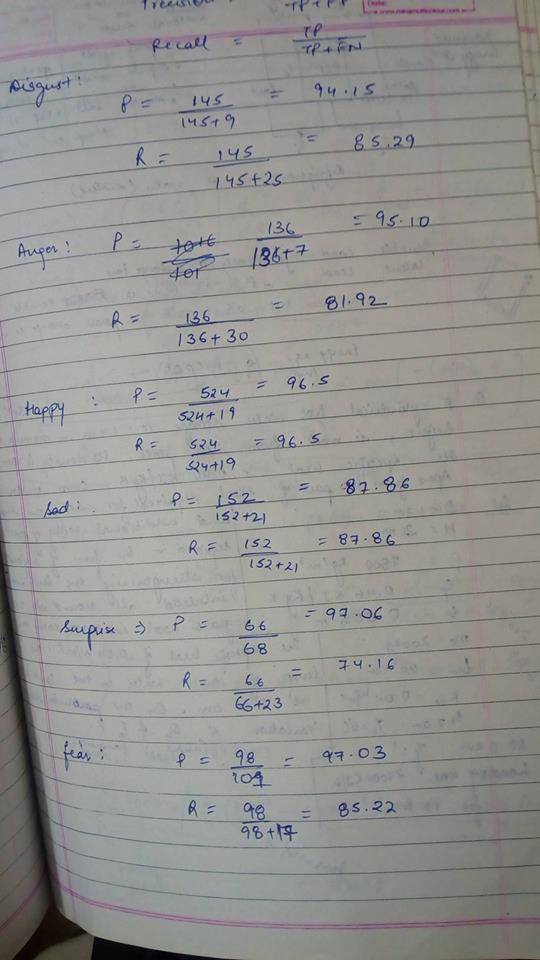 Precision TP + FP
Recall = TP / TP + FN
Disgust:
P = 145 / 145+9 = 94.15
R = 145 / 145+25 = 85.29
Anger: P = 136 / 136+7 = 95.10
R = 136 / 136 + 30 = 81.92
Happy : P = 524 / 524+19 = 96.5
R = 524 / 524+19 = 96.5
Sad: P = 152 / 152+21 = 87.86
R = 152 / 152+21 = 87.86
Surprise => P = 66 / 68 = 97.06
R = 66 / 66+23 = 74.16
fear: P = 98 / 101 = 97.03
R = 98 / 98+17 = 85.22